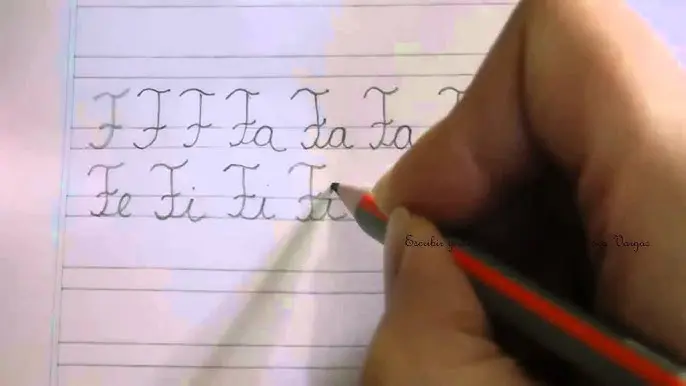 F F F Fa Fa Fa
Fe Fi Fi Fi
Escribir y Vargas